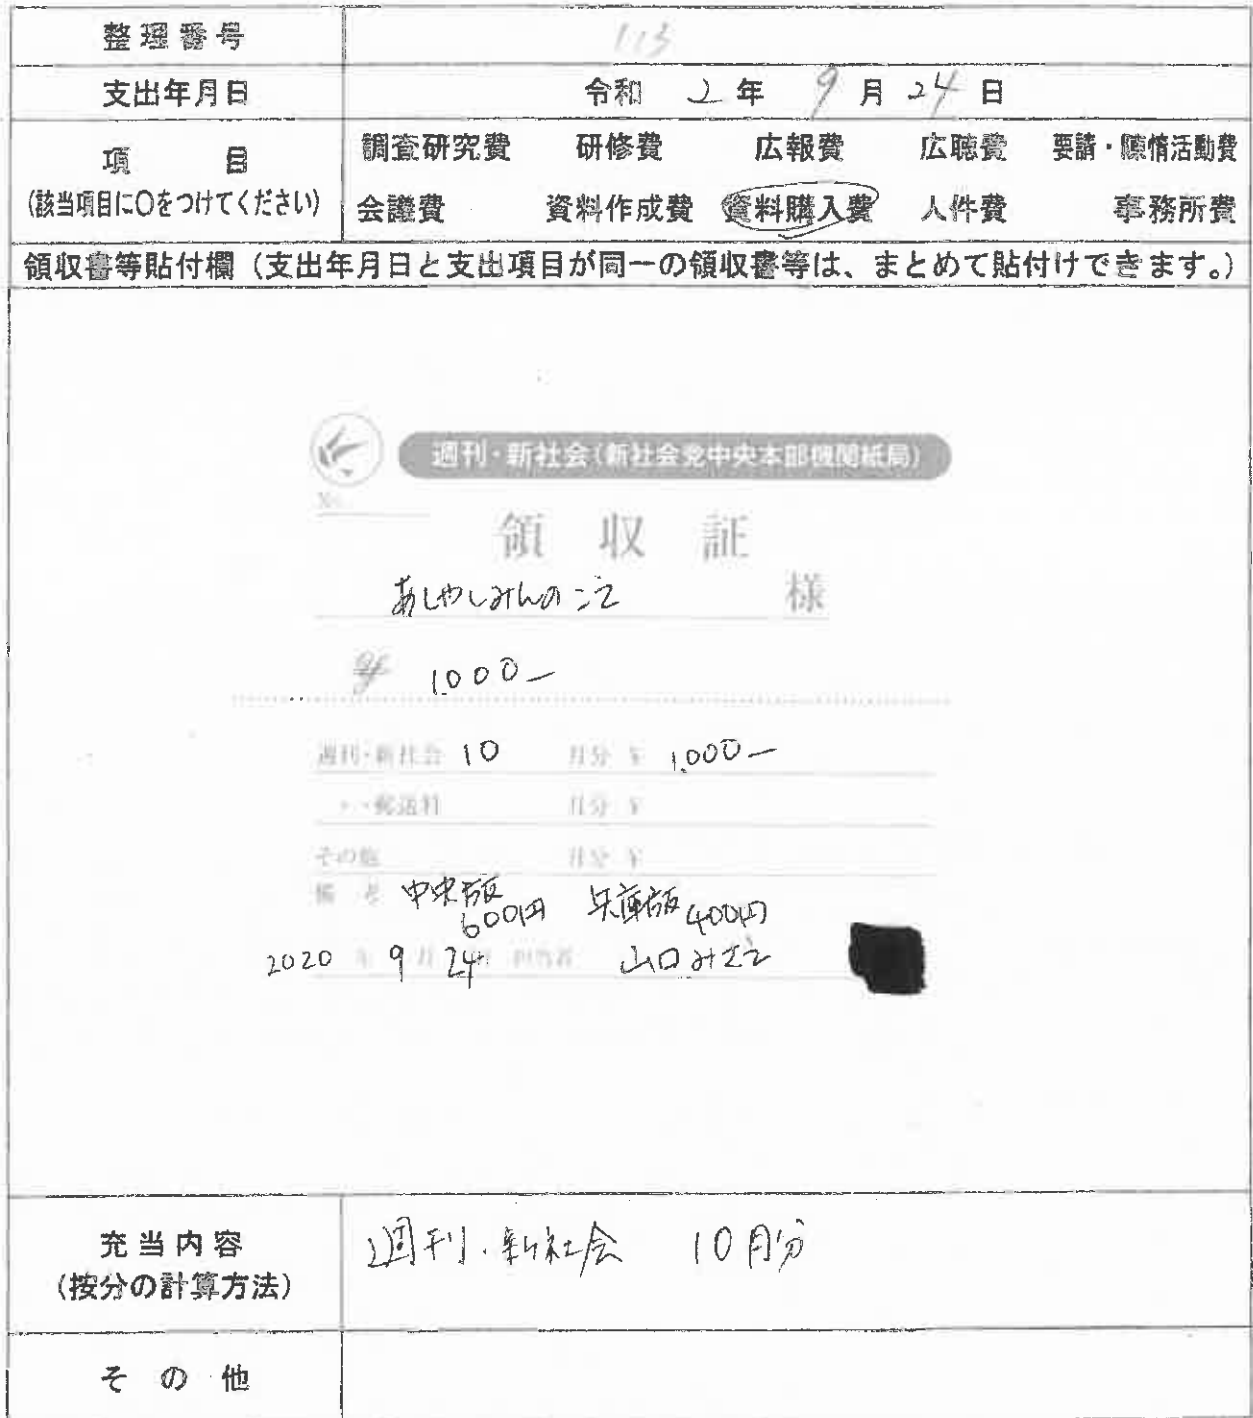 整理番号 113
支出年月日 令和 2 年 9 月 24 日
項目 調査研究費 研修費 広報費 広聴費 要請・陳情活動費
(該当項目に〇をつけてください) 会議費 資料作成費 資料購入費 人件費 事務所費
領収書等貼付欄（支出年月日と支出項目が同一の領収書等は、まとめて貼付けできます。）
週刊・新社会(新社会党中央本部機関紙局)
No.
領収証
あしやしみんのこえ 様
¥ 1,000-
週刊・新社会 10 月分 ¥ 1,000-
〃・郵送料 月分 ¥
その他 月分 ¥
備考 中央版 600円 兵庫版 400円
2020 年 9 月 24 日 担当者 山口みさえ
充当内容 週刊・新社会 10月分
(按分の計算方法)
その他